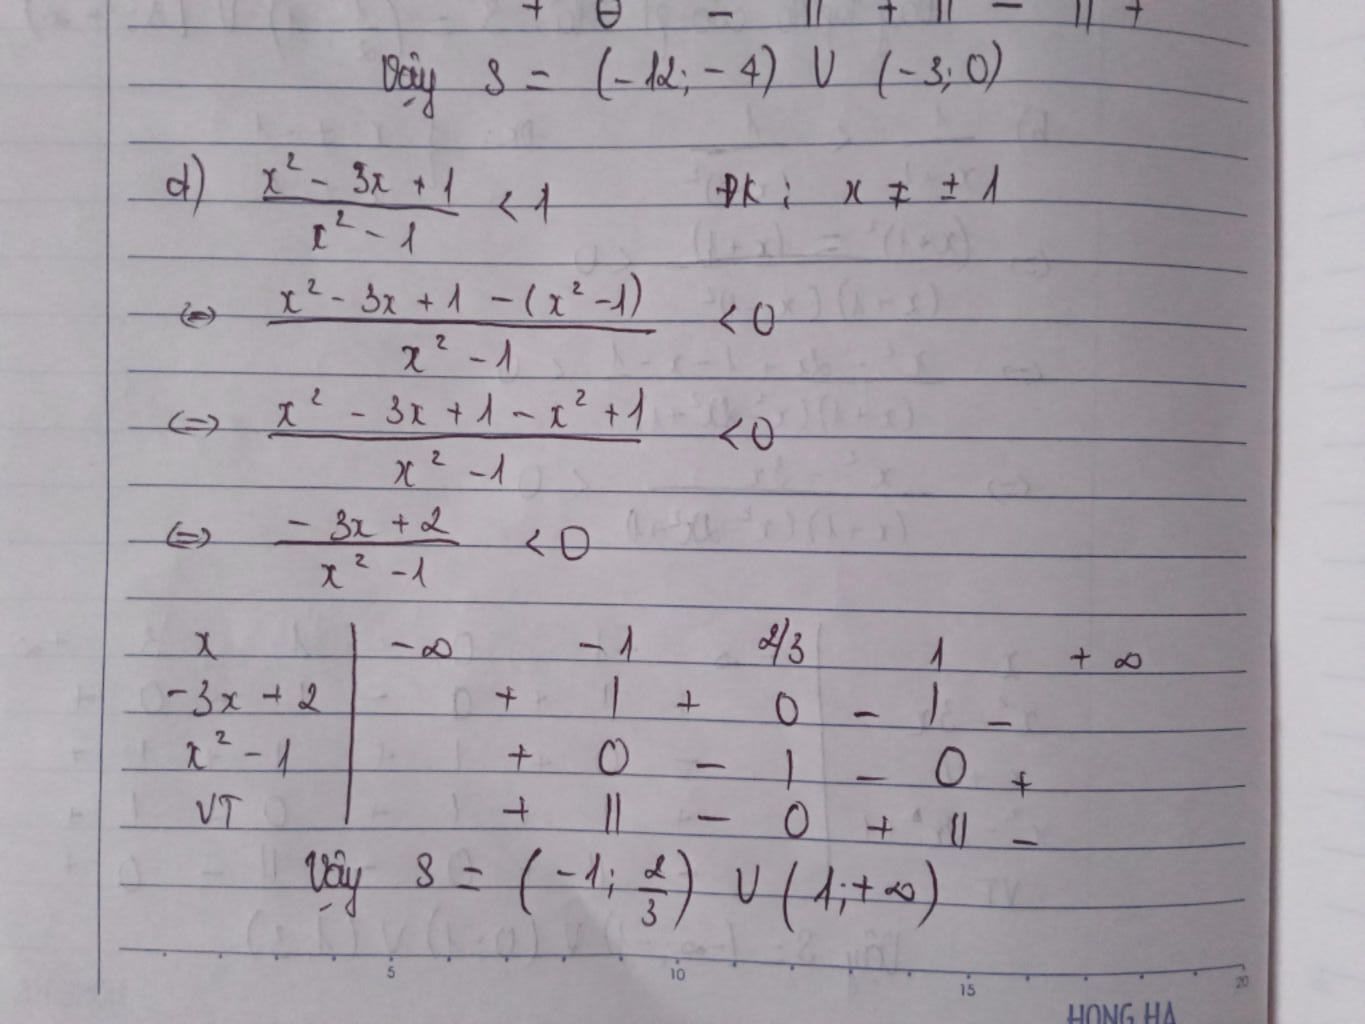 + 0 - || + || - || +
Vậy S = (-12; -4) U (-3; 0)
d) \frac{x² - 3x + 1}{x² - 1} < 1 ĐK: x ≠ ± 1
<=> \frac{x² - 3x + 1 - (x² - 1)}{x² - 1} < 0
<=> \frac{x² - 3x + 1 - x² + 1}{x² - 1} < 0
<=> \frac{-3x + 2}{x² - 1} < 0
x | -∞ -1 2/3 1 +∞
-3x + 2 | + | + 0 - | -
x² - 1 | + 0 - | - 0 +
VT | + || - 0 + || -
Vậy S = (-1; \frac{2}{3}) U (1; +∞)
5 10 15 20
HONG HA